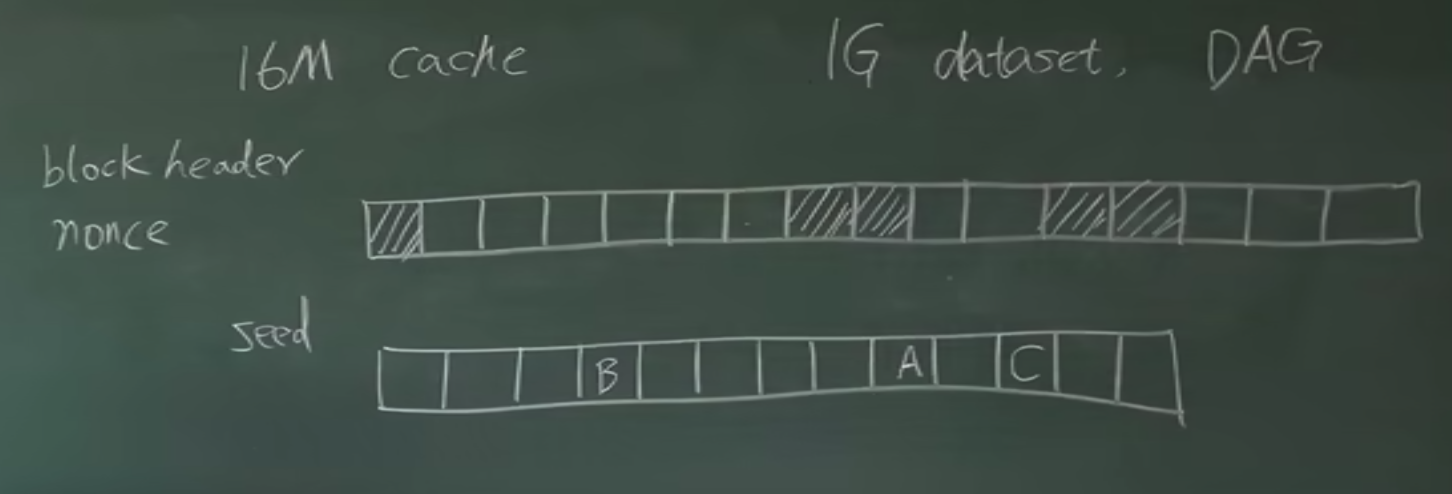 16M cache 1G dataset, DAG
block header
nonce
seed
B A C